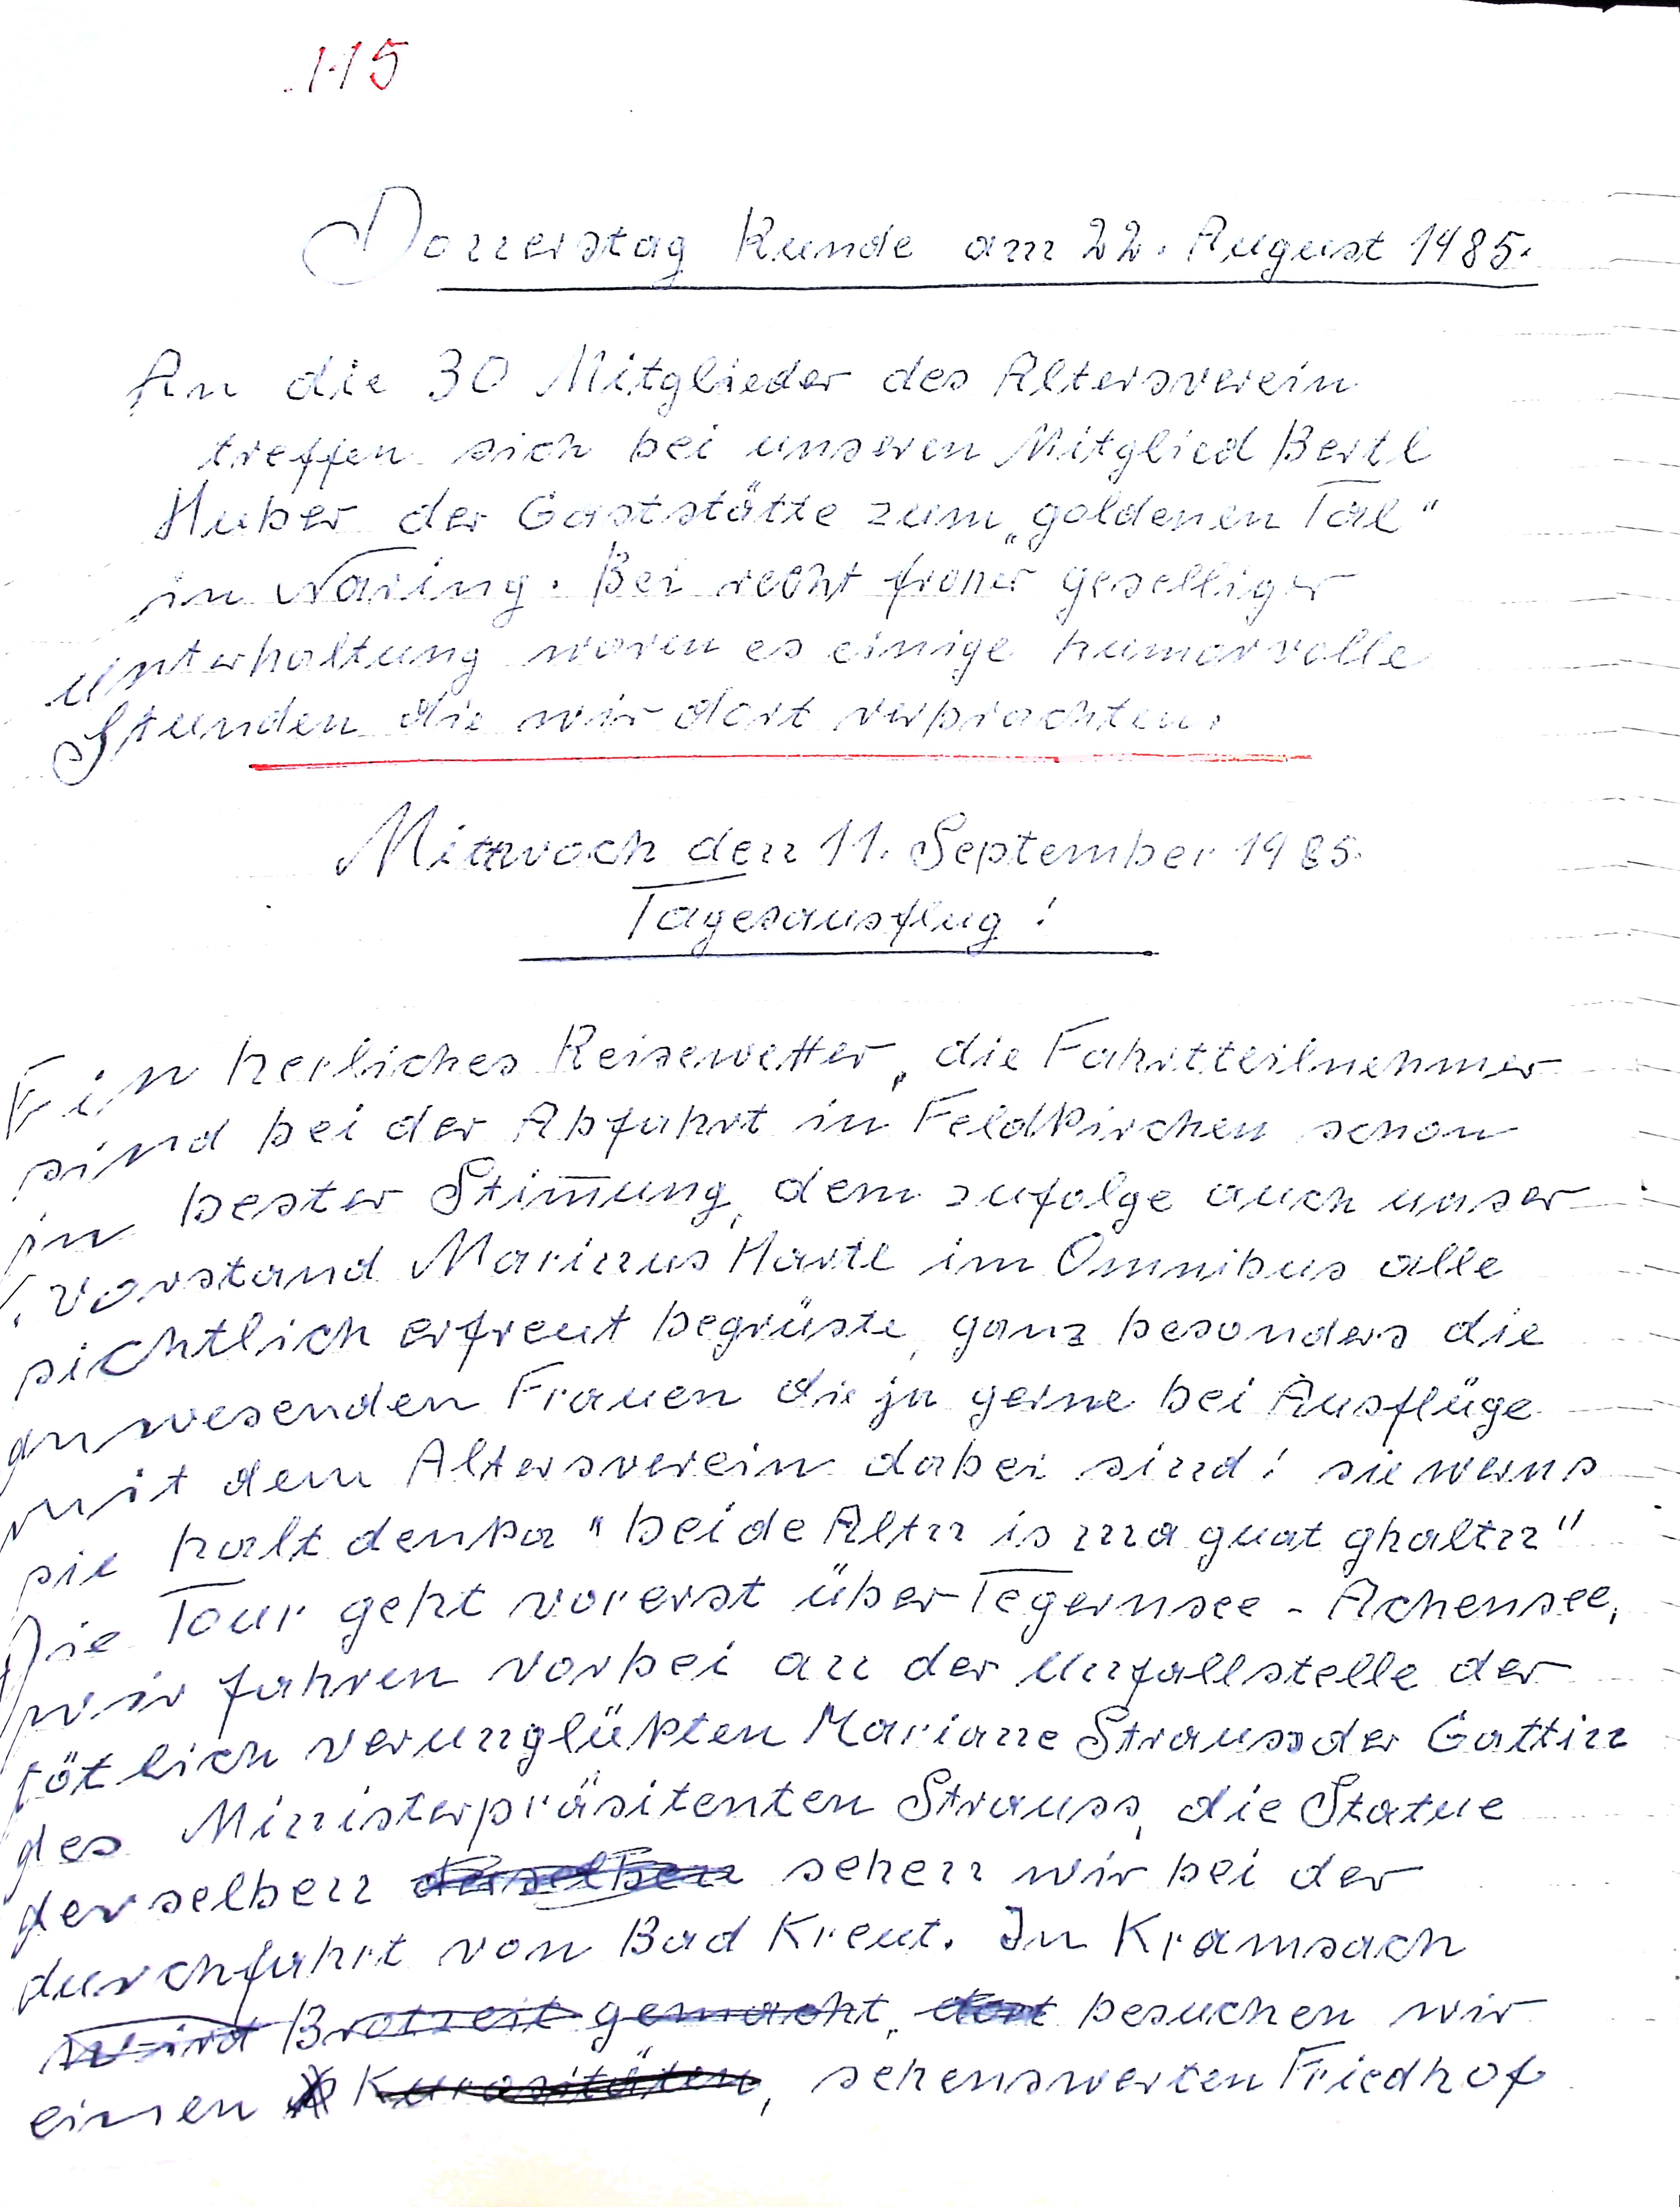 115
Donnerstag Runde am 22. August 1985.
An die 30 Mitglieder des Altersverein
treffen sich bei unseren Mitglied Bertl
Huber der Gaststätte zum „goldenen Tal"
in Naring. Bei recht froher geselliger
Unterhaltung waren es einige humorvolle
Stunden die wir dort verbrachten.
Mittwoch den 11. September 1985.
Tagesausflug!
Ein herliches Reisewetter, die Fahrtteilnehmer
sind bei der Abfahrt in Feldkirchen schon
in bester Stim̅ung, dem zufolge auch unser
1. Vorstand Marinus Hartl im Omnibus alle
sichtlich erfreut begrüste, ganz besonders die
anwesenden Frauen die ja gerne bei Ausflüge
mit dem Altersverein dabei sind! sie werns
sie halt denka "bei de Altn is ma guat ghaltn"
Die Tour geht vorerst über Tegernsee - Achensee,
wir fahren vorbei an der Unfallstelle der
tötlich verunglükten Mariane Strauss der Gattin
des Ministerpräsitenten Strauss, die Statue
derselben derselben sehen wir bei der
durchfahrt von Bad Kreut. In Kramsach
wird Brotzeit gemacht, dort besuchen wir
einen Kurasitäten, sehenswerten Friedhof